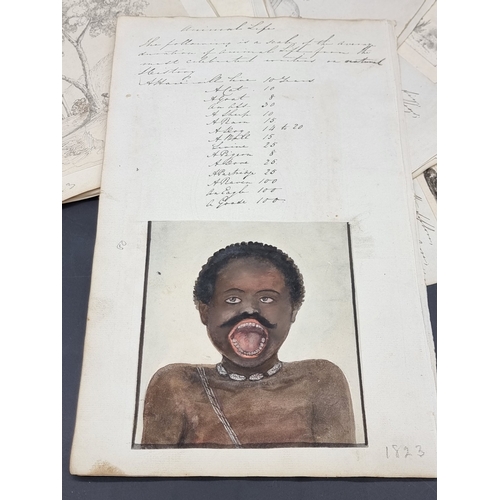 Animal Life
The following is a scale of the average
duration of animal Life, from the
most celebrated writers on natural
History
A Hare will live 10 Years
A Cat 10
A Goat 8
An Ass 30
A Sheep 10
A Ram 15
A Dog 14 to 20
A Bull 15
Swine 25
A Pigeon 8
A Dove 25
A Partridge 25
A Raven 100
An Eagle 100
A Goose 100
1823